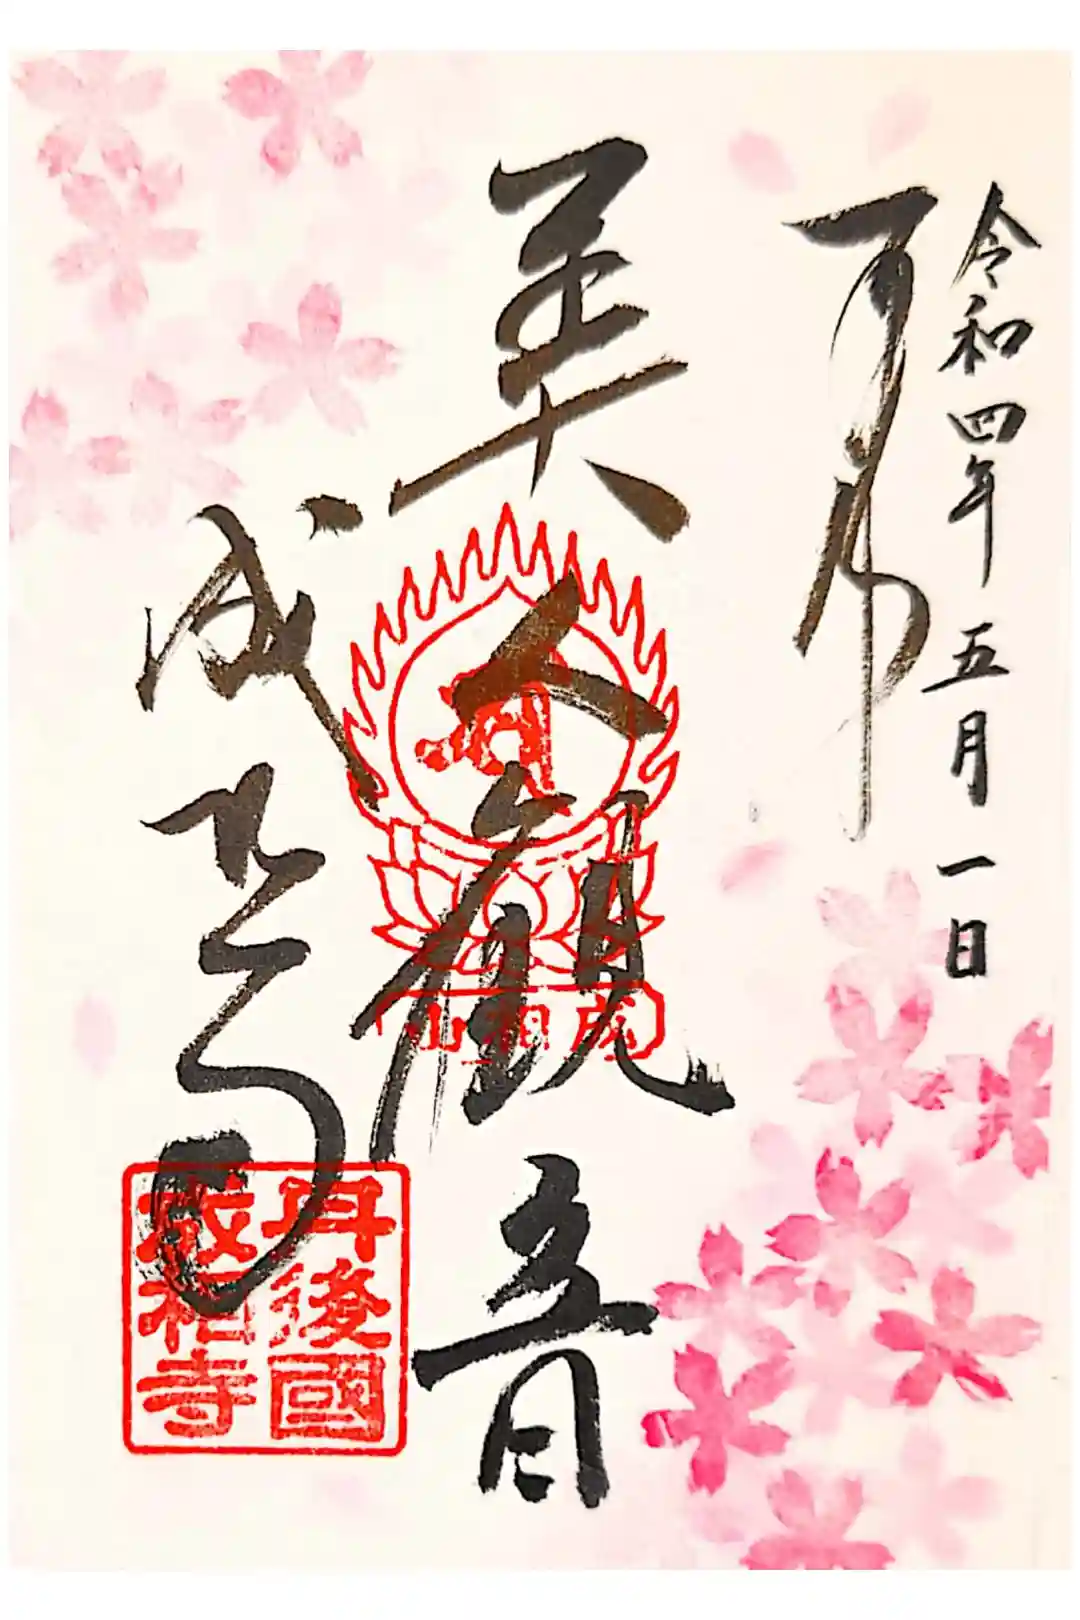 令和四年 五月 一日
奉拝
美人観音
成相寺
成相山
丹後國
成相寺